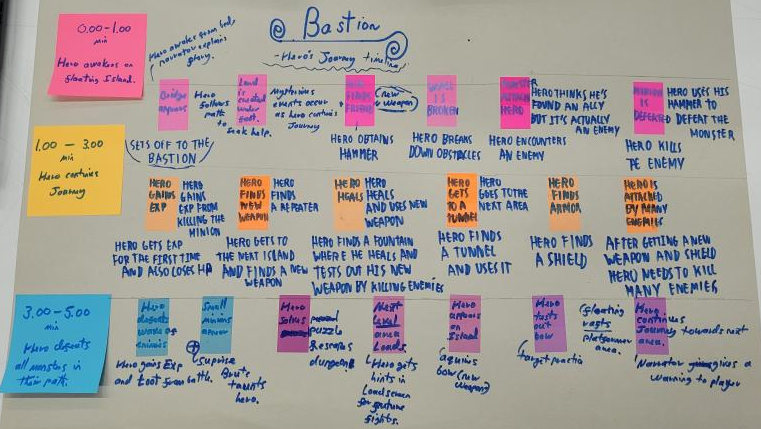 Bastion
-Hero's Journey timeline-
0.00-1.00
min
Hero awakens on
floating Island.
Hero awakes from bed,
narrator explains
story.
Bridge
appears
Hero
follows
path
to
seek help.
Land is
created
under
foot.
Mysterious
events occur
as hero continues
Journey
HERO
FINDS
(new
weapon)
IS
BROKEN
MONSTER
ATTACKS
HERO
HERO THINKS HE'S
FOUND AN ALLY
BUT IT'S ACTUALLY
AN ENEMY
MINION
IS
DEFEATED
HERO USES HIS
HAMMER TO
DEFEAT THE
MONSTER
SETS OFF TO THE
BASTION
HERO OBTAINS
HAMMER
HERO BREAKS
DOWN OBSTACLES
HERO ENCOUNTERS
AN ENEMY
HERO KILLS
TE ENEMY
1.00 - 3.00
min
Hero continues
Journey
HERO
GAINS
EXP
HERO
GAINS
EXP FROM
KILLING THE
MINION
HERO
FINDS
NEW
WEAPON
HERO
FINDS
A REPEATER
HERO
HEALS
HERO
HEALS
AND USES NEW
WEAPON
HERO
GETS
TO A
TUNNEL
HERO
GOES TO THE
NEXT AREA
HERO
FINDS
ARMOR
HERO IS
ATTACKED
BY MANY
ENEMIES
HERO GETS EXP
FOR THE FIRST TIME
AND ALSO LOSES HP
HERO GETS TO
THE NEXT ISLAND
AND FINDS A NEW
WEAPON
HERO FINDS A FOUNTAIN
WHERE HE HEALS AND
TESTS OUT HIS NEW
WEAPON BY KILLING ENEMIES
HERO FINDS
A TUNNEL
AND USES IT
HERO FINDS
A SHIELD
AFTER GETTING A NEW
WEAPON AND SHIELD
HERO NEEDS TO KILL
MANY ENEMIES
3.00-5.00
min
Hero defeats
all monsters in
their path.
Hero
defeats
wave of
enimies
Small
minions
appear
Hero
solves
puzzle
Rescapes
dungeon
Next
Level
area
Loads.
Hero
appears
on
Island
Hero
tests
out
bow
(floating
rafts)
platformer
area.
Hero
continues
Journey towards next
area.
Hero gains Exp
and Loot from battle.
Suprise
Brute
taunts
hero.
Hero gets
hints in
Load screen
for future
fights.
aquires
bow (new
weapon)
target practice
Narrator gives a
warning to player